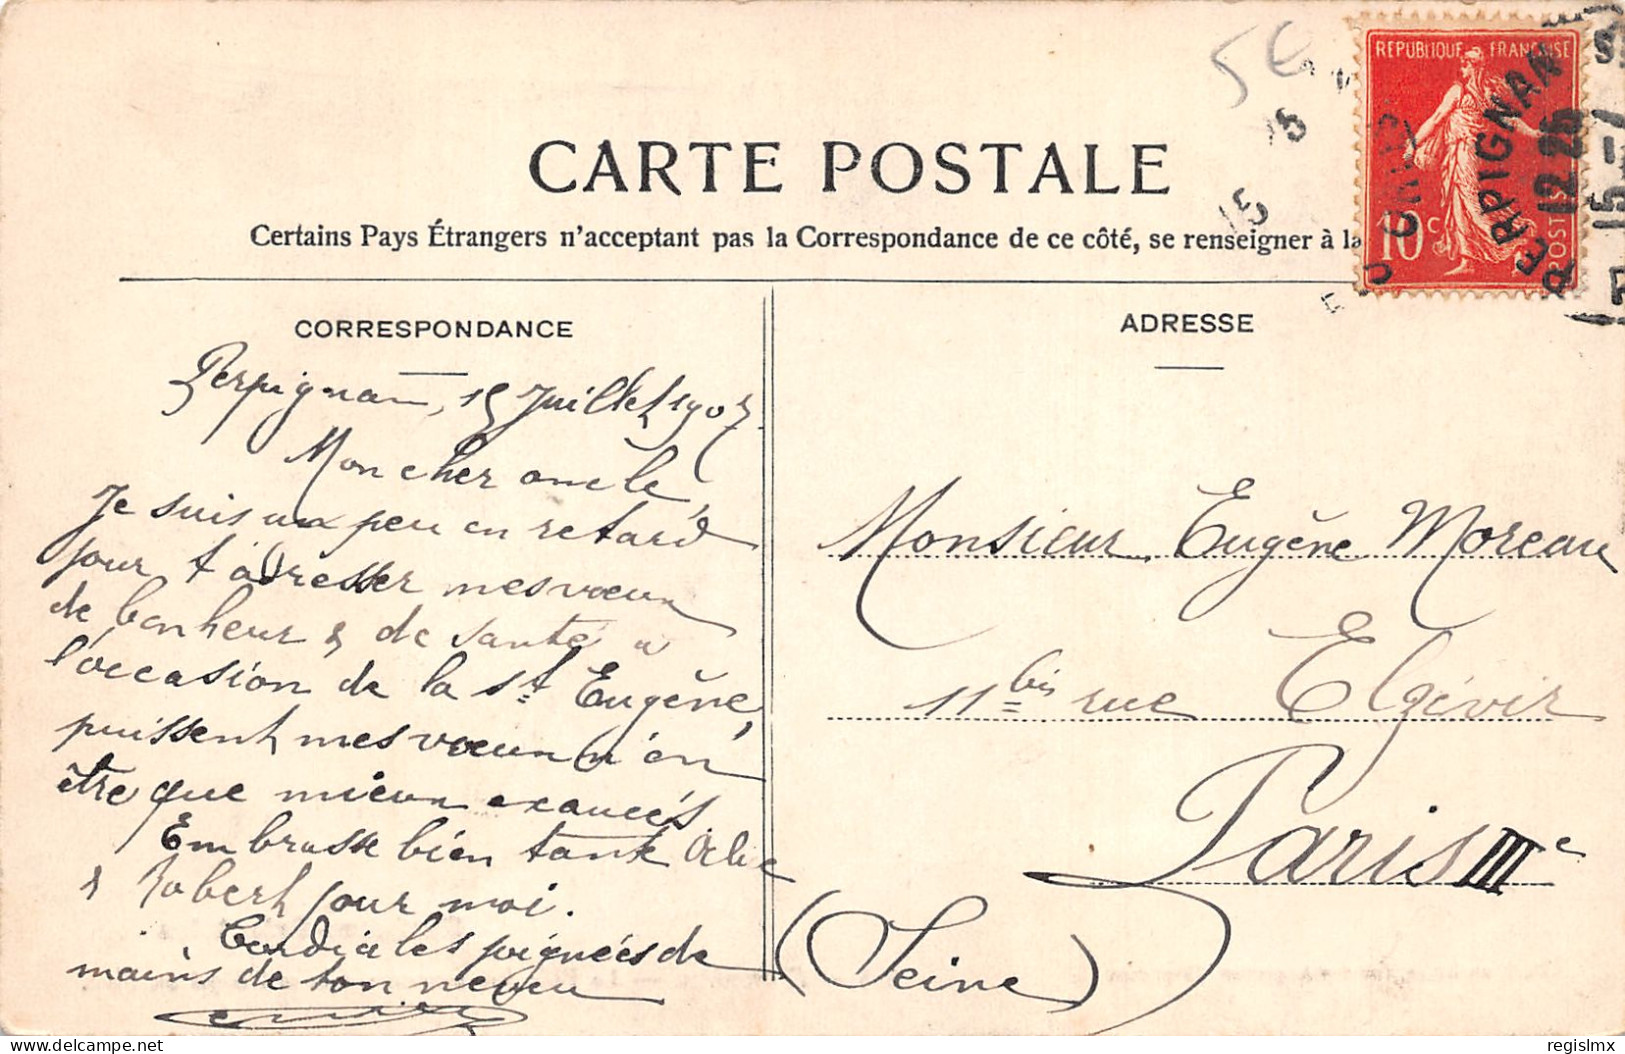 5€
REPUBLIQUE FRANÇAISE
10c
POSTES
PERPIGNAN
12 25
15 -7
CARTE POSTALE
Certains Pays Étrangers n'acceptant pas la Correspondance de ce côté, se renseigner à la
CORRESPONDANCE
Perpignan, 15 Juillet 1907.
Mon cher oncle
Je suis un peu en retard
pour t'adresser mes vœux
de bonheur & de santé a
l'occasion de la St Eugène,
puissent mes vœux n'en
être que mieux exaucés
Embrasse bien tante
& Robert pour moi.
Cordiales poignées de
mains de ton neveu
ADRESSE
Monsieur Eugène Moreau
11bis rue Elzévir
Paris IIIe
(Seine)
delcampe.net
regislmx